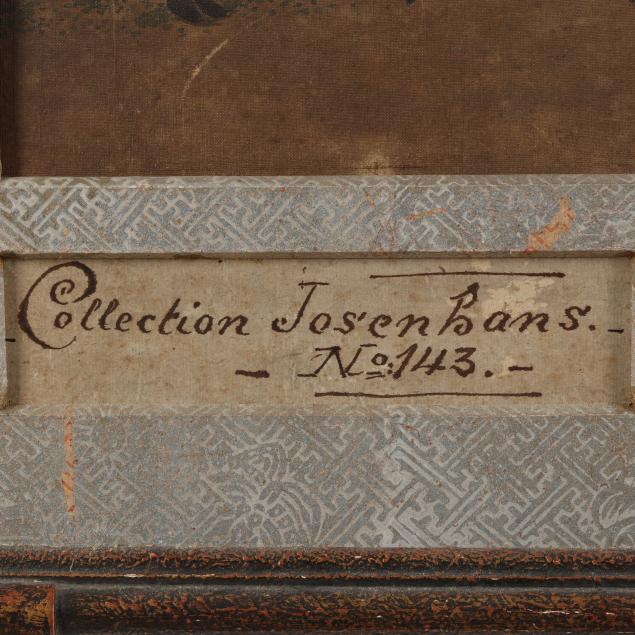 Collection Josenhans.
Nº: 143.